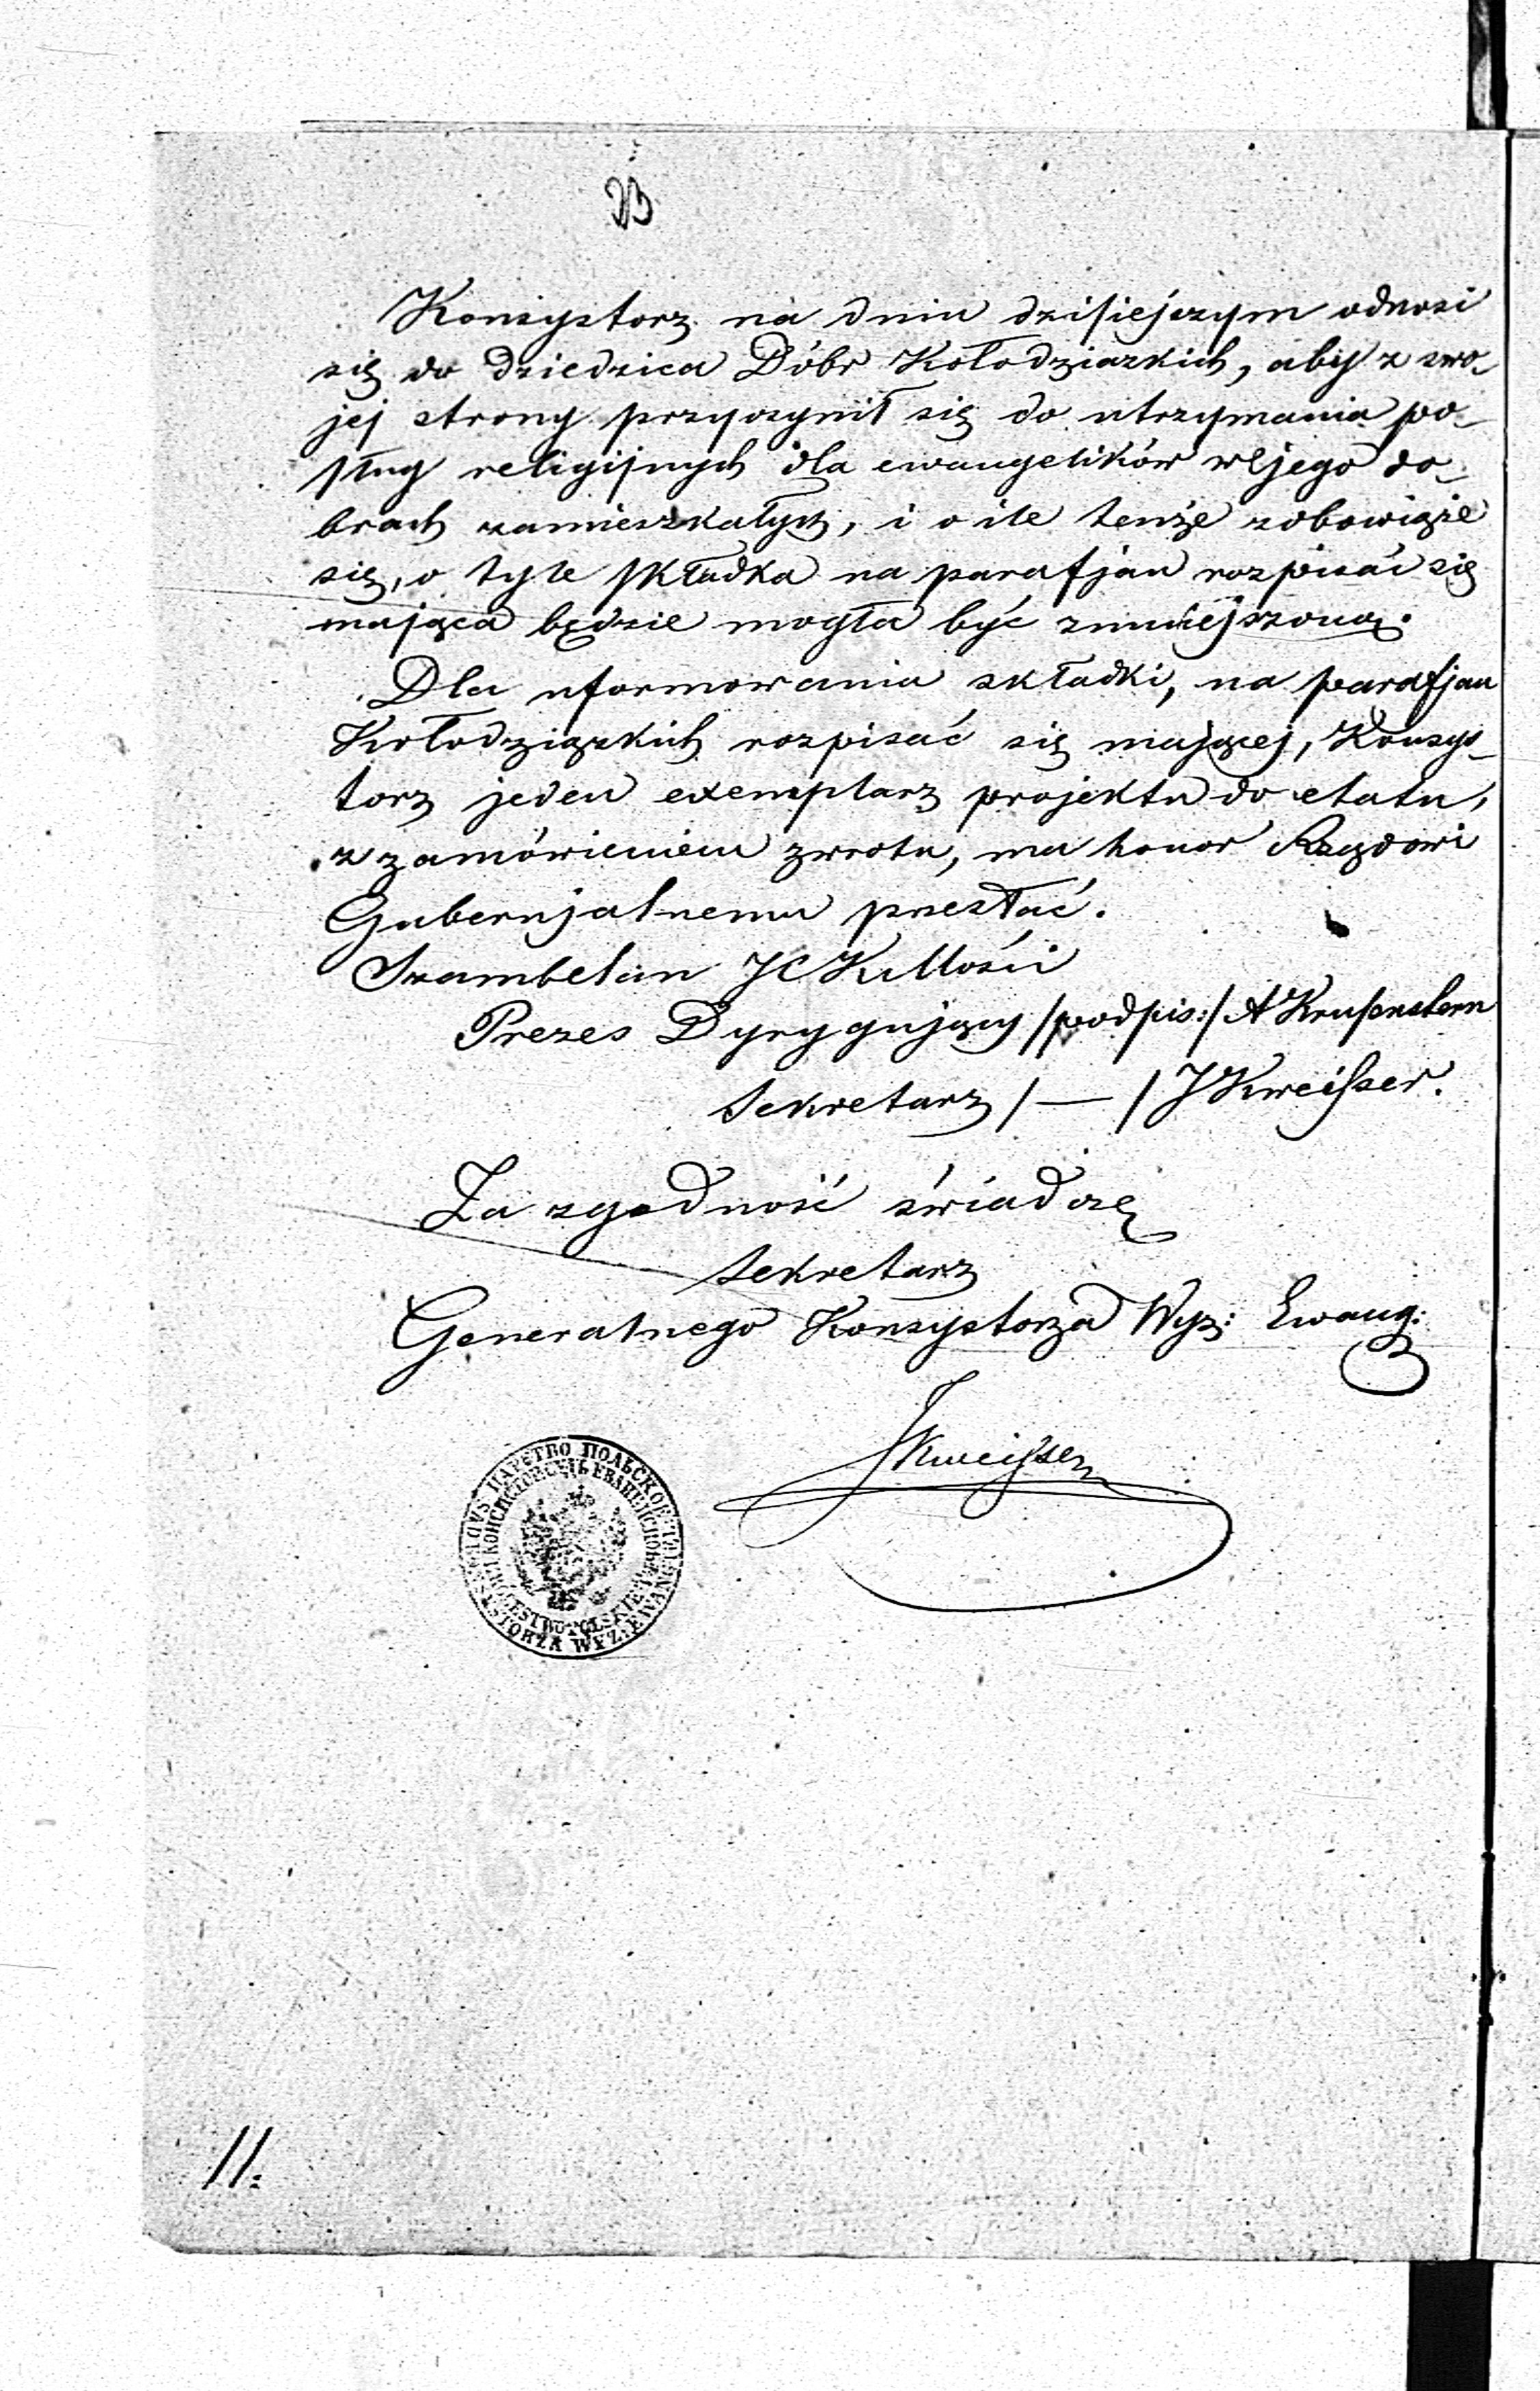 23
Konsystorz na dniu dzisiejszym odnosi
się do dziedzica Dóbr Kołodziązkich, aby z swo-
jej strony przyczynił się do utrzymania po-
sług religijnych dla ewangelików w jego do-
brach zamieszkałych, i o ile tenże zobowiąże
się, o tyle składka na parafjan rozpisać się
mająca będzie mogła być zmniejszoną.
Dla uformowania składki, na parafjan
Kołodziązkich rozpisać się mającej, Konsys-
torz jeden exemplarz projektu do etatu,
z zamówieniem zwrotu, ma honor Rządowi
Gubernjalnemu przesłać.
Szambelan JCKMości
Prezes Dyrygujący /podpis:/ A Krusenstern
Sekretarz /—/ JKweisser.
Za zgodność świadczę
Sekretarz
Generalnego Konsystorza Wyz: Ewang:
JKweisser
ЦАРСТВО ПОЛЬСКОЕ
KONSYSTORZA WYZ: EWANGEL
KRÓLESTWO POLSKIE
11.